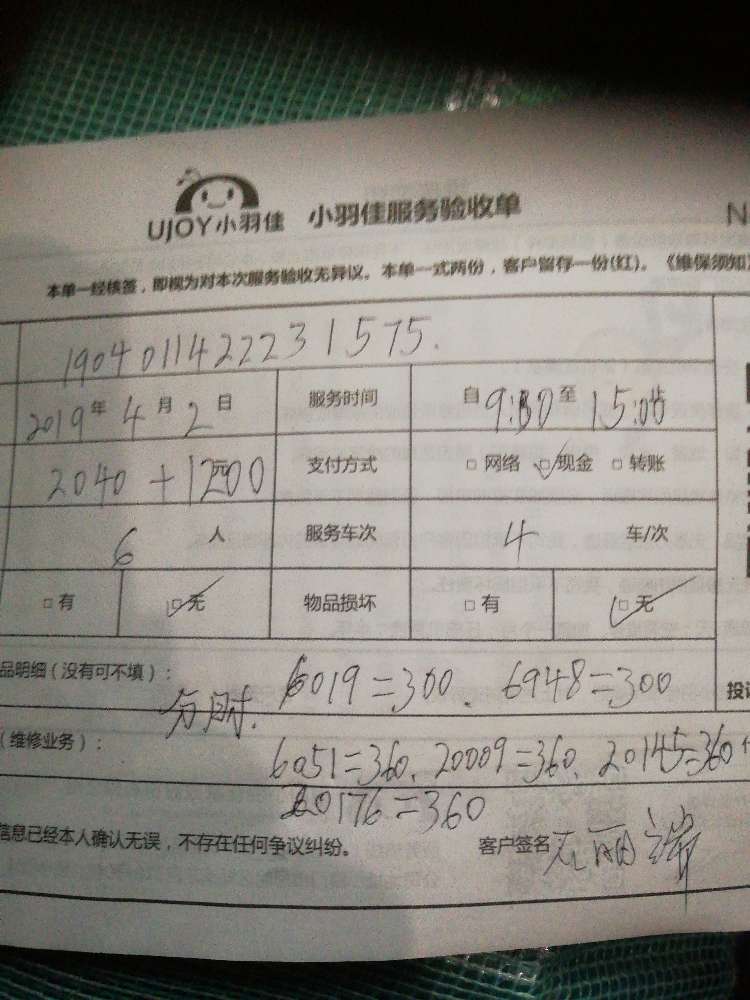 UJOY小羽佳 小羽佳服务验收单
N
本单一经核签，即视为对本次服务验收无异议。本单一式两份，客户留存一份(红)。《维保须知》
19040114222231575.
2019年4月2日 服务时间 自9:30至15:00
2040+1200元 支付方式 □ 网络 ☑现金 □ 转账
6人 服务车次 4 车/次
□ 有 ☑无 物品损坏 □ 有 ☑无
品明细（没有可不填）： 6019=300、6948=300 投诉
分时.
（维修业务）： 6051=360、20009=360、20145=360
20176=360
信息已经本人确认无误，不存在任何争议纠纷。 客户签名